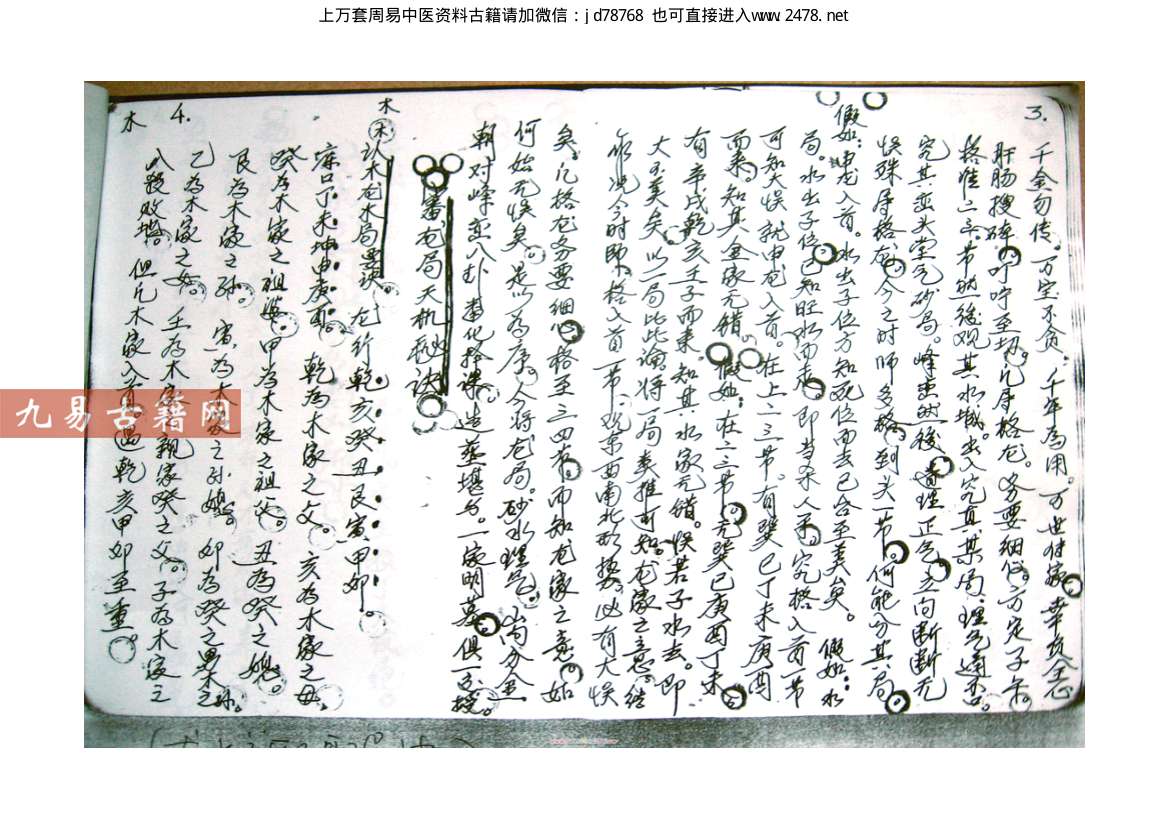 上万套周易中医资料古籍请加微信：jd78768 也可直接进入www.2478.net
3.
千金勿传。万宝不贪。千年为用。万世付家。幸負全心
肝肠搜碎。叮咛至切。凡序格龙。务要细心。方定子午。
格准二三节。然后观其水城。出入究真某局。理气通否。
究其峦头堂气砂局。峰峦然后。看理正气立向断断无
悮殊序格龙。今之时师多格到头一节。何能分其局
假如：申龙入首。水出子位方知死位而去已合至美矣。假如：水
局。水出子位已知旺水而走。即当杀人矣。究格入首节
可知大悮。就申龙入首。在上二三节。有巽巳丁未庚酉
而来。知其金家无错。假如：在二三节无巽巳庚酉丁未
有辛戌乾亥壬子而来。知其水家无错。悮若子水去。即
大不美矣。以一局比此論。将一局类推可知。龙家之意。
况今时师。格入首一节。观东西南北形势。必有大悮
矣。凡格龙务要细心。格至三四节。而知龙家之意。如
何始无悮矣。是以为序。今将龙局。砂水理气。山向分金
朝对峰峦八卦造化择课造葬堪与。一家明墓俱一
審龙局天机秘诀
木
认木龙木局要诀 龙行乾亥癸丑艮寅甲卯。
丁未坤申庚酉。乾為木家之父。亥為木家之母。
癸為木家之祖婆。甲為木家之祖父。丑為癸之媳。
艮為木家之孙。寅為木家之孙媳。卯為癸之男木之孙。
乙為木家之女。壬為木家親家癸之父。子為木家之
八殺败地。但凡木家入首。遇乾亥甲卯至重。
4.
木
九易古籍网